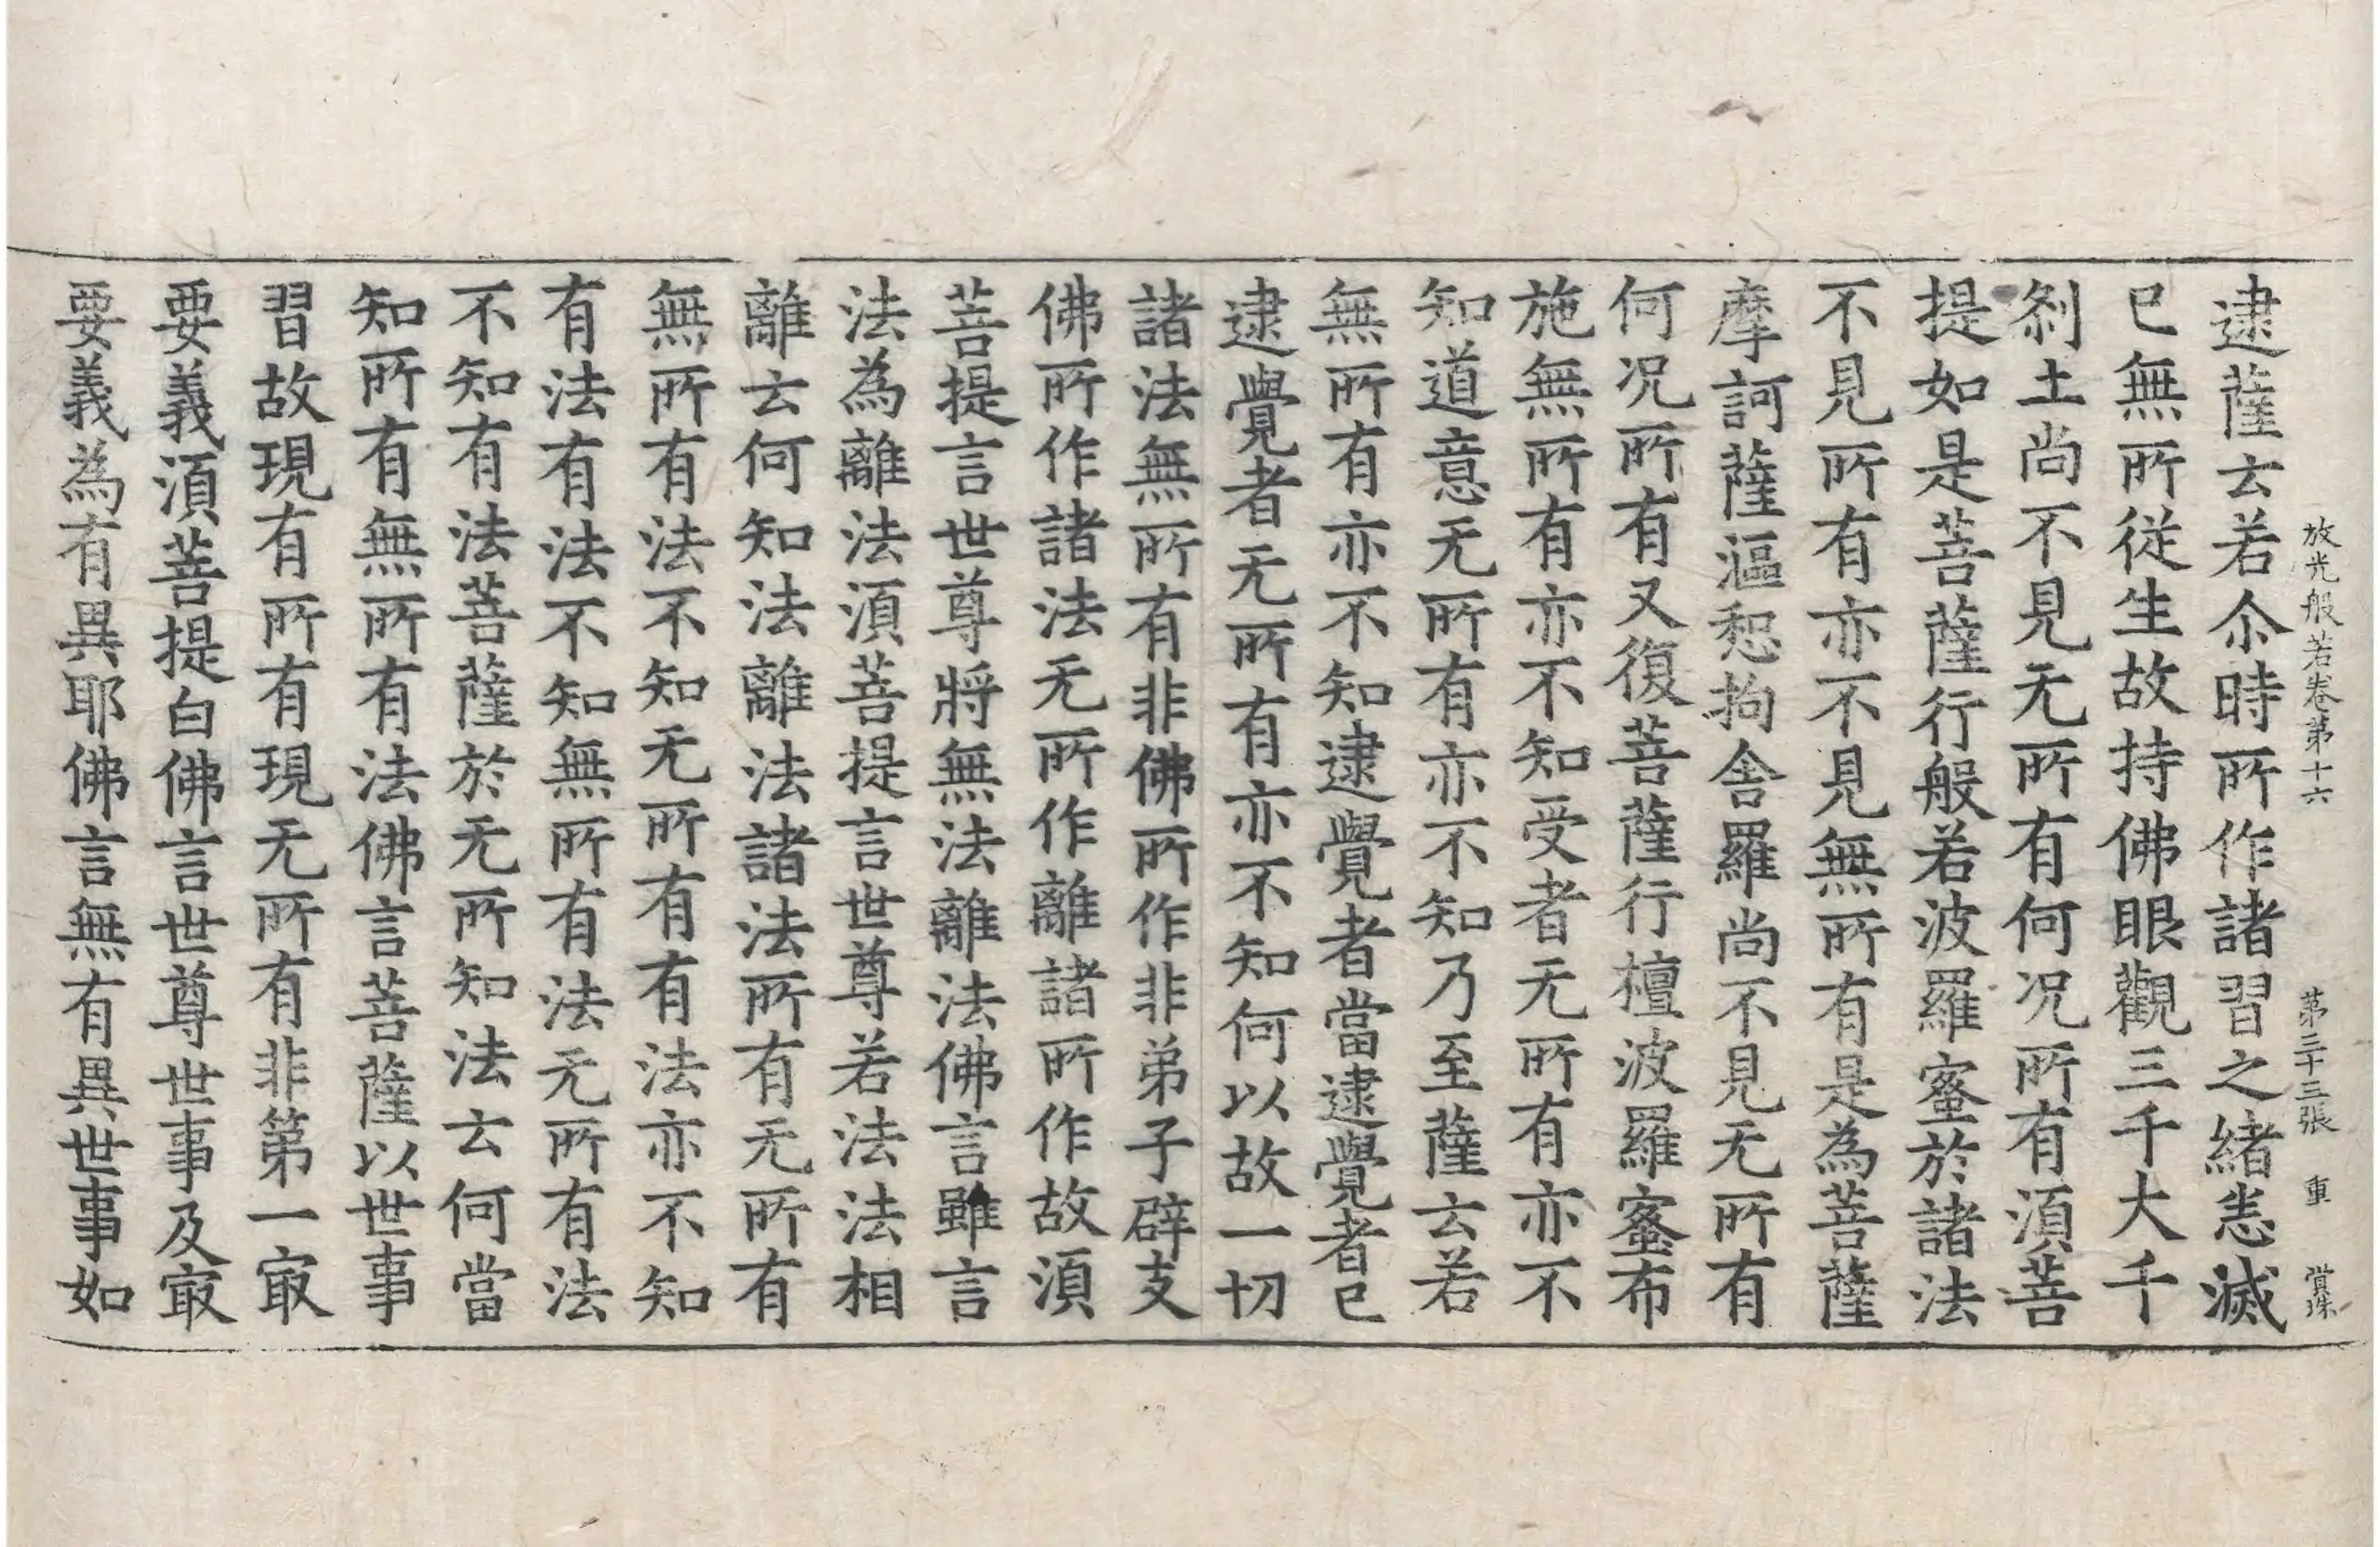 放光般若卷第十六 第三十三張 重
逮薩云若尒時所作諸習之緒恚滅
已無所從生故持佛眼觀三千大千
刹土尚不見无所有何况所有須菩
提如是菩薩行般若波羅蜜於諸法
不見所有亦不見無所有是為菩薩
摩訶薩漚惒拘舍羅尚不見无所有
何况所有又復菩薩行檀波羅蜜布
施無所有亦不知受者无所有亦不
知道意无所有亦不知乃至薩云若
無所有亦不知逮覺者當逮覺者已
逮覺者无所有亦不知何以故一切
諸法無所有非佛所作非弟子辟支
佛所作諸法无所作離諸所作故須
菩提言世尊將無法離法佛言雖言
法為離法須菩提言世尊若法法相
離云何知法離法諸法所有无所有
無所有法不知无所有有法亦不知
有法有法不知無所有法无所有法
不知有法菩薩於无所知法云何當
知所有無所有法佛言菩薩以世事
習故現有所有現无所有非第一㝡
要義須菩提白佛言世尊世事及㝡
要義為有異耶佛言無有異世事如